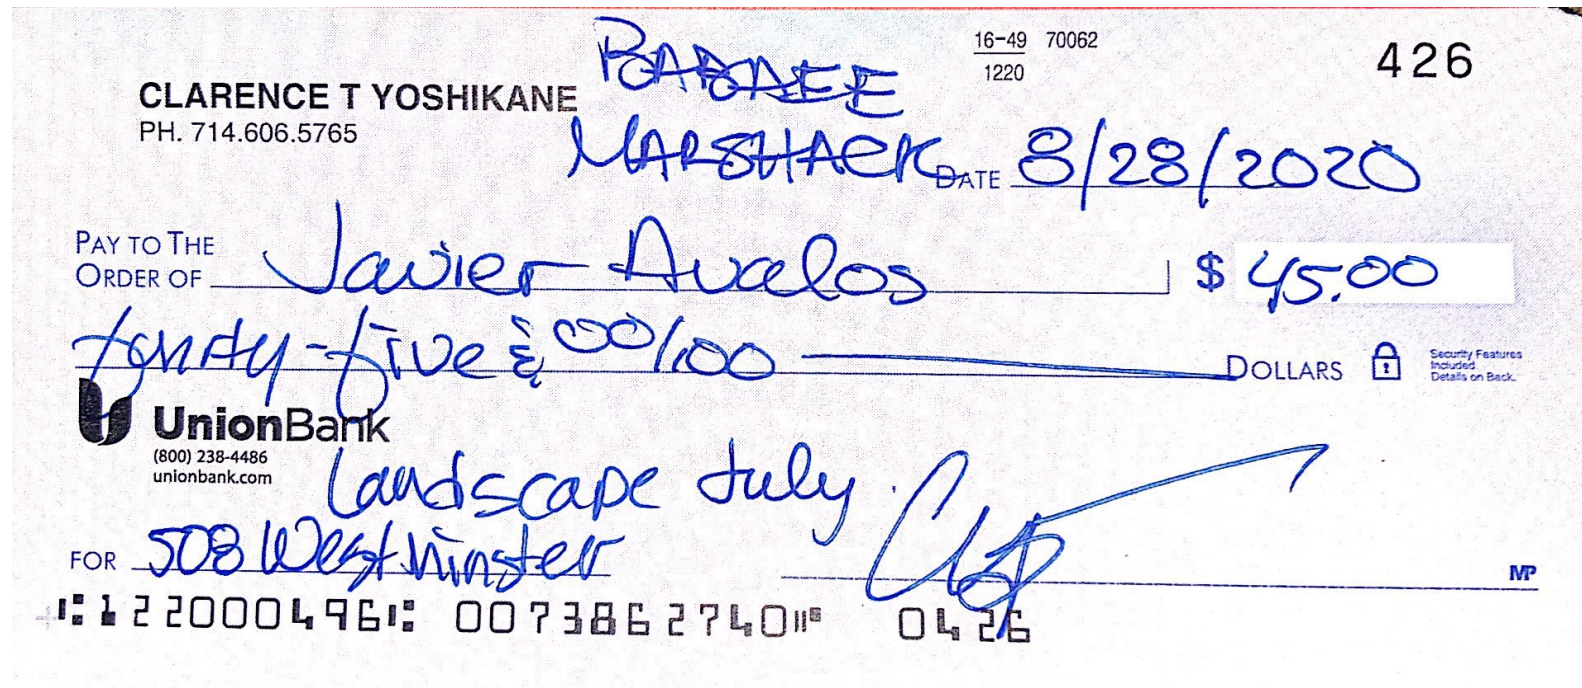 16-49 70062
1220
426
CLARENCE T YOSHIKANE
PH. 714.606.5765
MARSHACK
DATE 8/28/2020
PAY TO THE
ORDER OF Javier Avalos $ 45.00
-five & 00/100 DOLLARS
Security Features
Included.
Details on Back.
UnionBank
(800) 238-4486
unionbank.com
Landscape July
FOR 508 Westminster
MP
⑆122000496⑆ 0073862740⑈ 0426